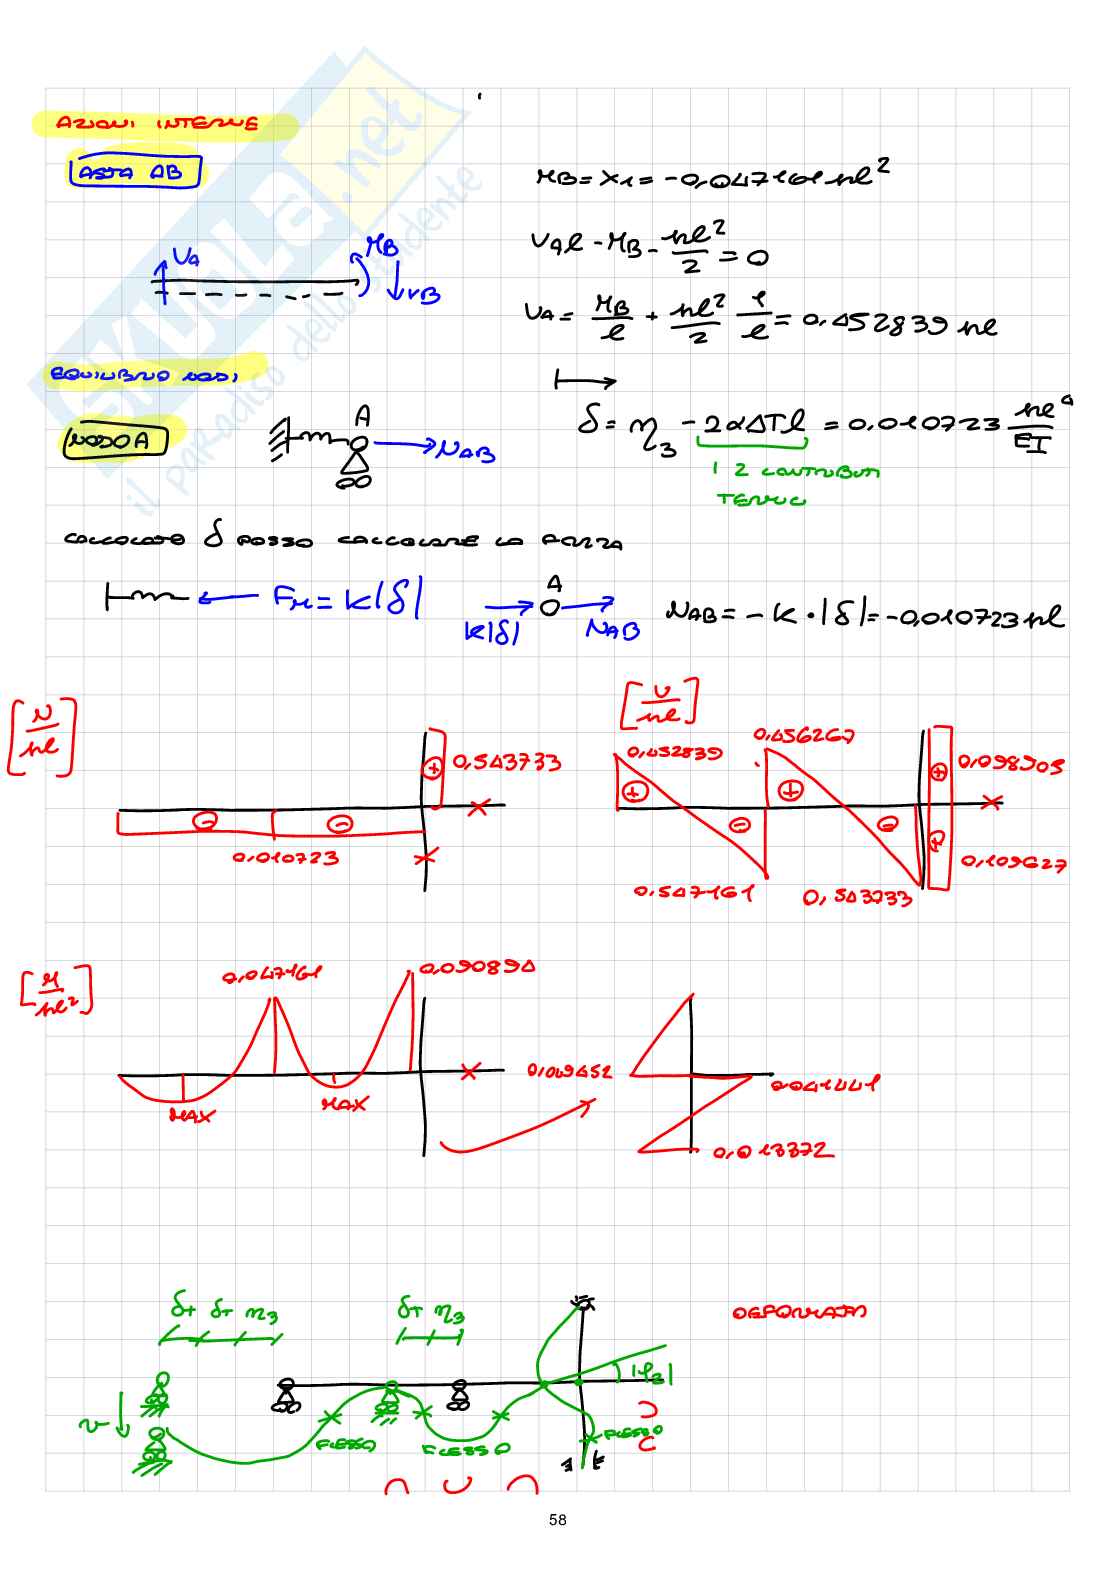 AZIONI INTERNE
ASTA AB
MB = X1 = -0,047161 pl²
VA
MB
VB
VA l - MB - pl²/2 = 0
VA = MB/l + pl²/2 1/l = 0,452839 pl
EQUILIBRIO NODI
NODO A
A
NAB
δ = η3 - 2αΔTl = 0,010723 pl⁴/EI
2 CONTRIBUTI
TERMICI
CALCOLATO δ POSSO CALCOLARE LA FORZA
FM = K|δ|
A
K|δ|
NAB
NAB = -K·|δ| = -0,010723 pl
[N/pl]
0,543733
0,010723
[V/pl]
0,452839
0,456267
0,098905
0,547161
0,543733
0,109627
[M/pl²]
0,047161
0,090894
MAX
MAX
0,049452
0,041441
0,013372
δT δT η3
δT η3
DEFORMATA
|φ2|
v
FLESSO
FLESSO
FLESSO
58
SKUOLA.net
il paradiso dello studente